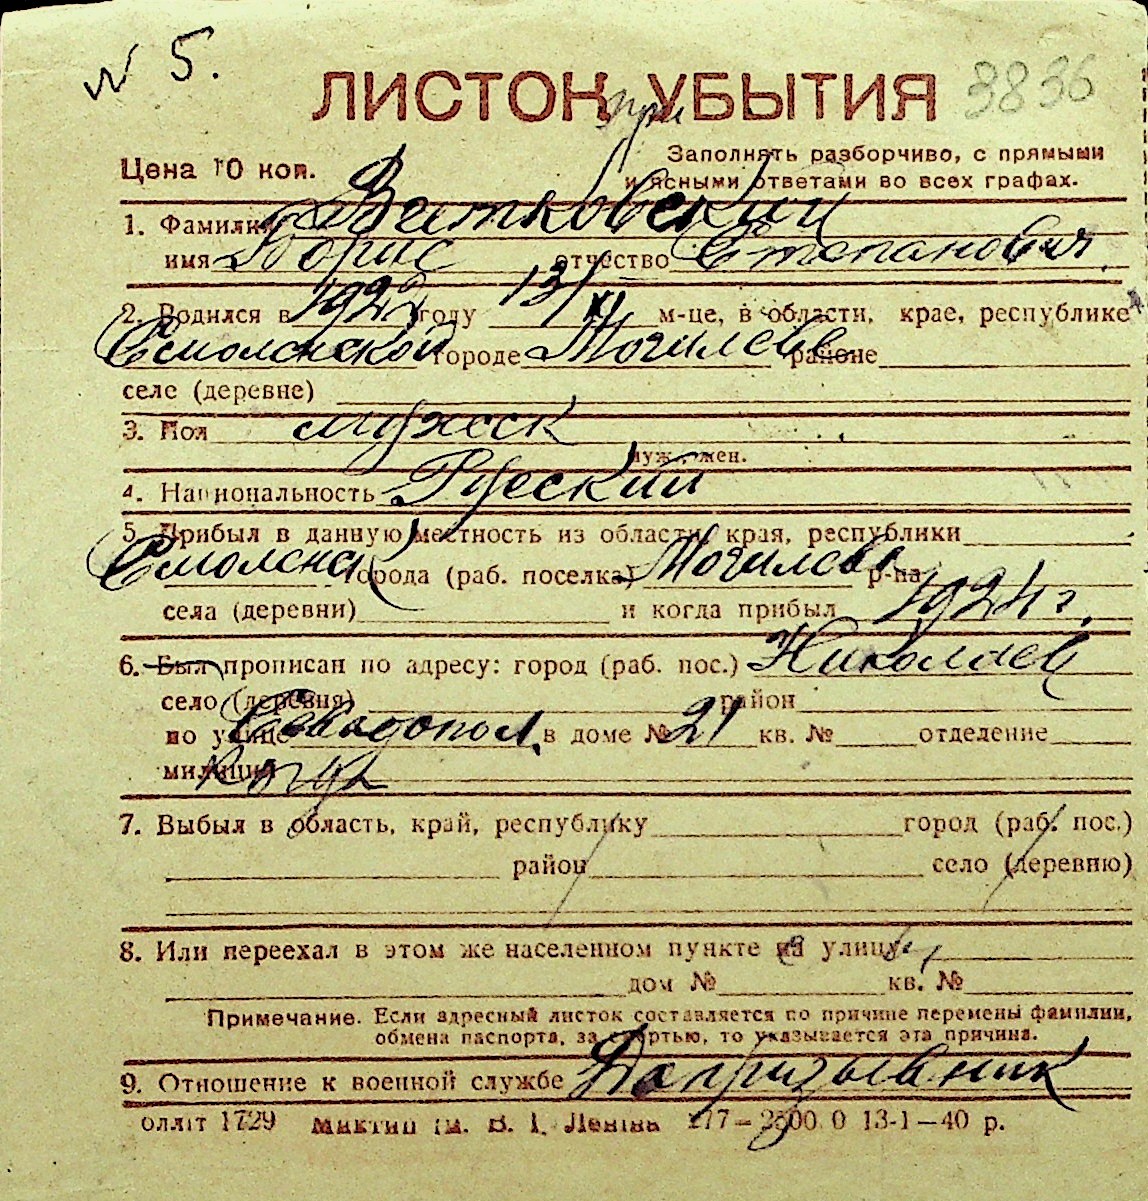 № 5.
ЛИСТОК УБЫТИЯ 3836
при
Цена 10 коп. Заполнять разборчиво, с прямыми
и ясными ответами во всех графах.
1. Фамилия Ватковский
имя Борис отчество Степанович
2. Родился в 1922 году 13/XI м-це, в области, крае, республике
Смоленской городе Могилеве районе
селе (деревне)
3. Пол мужеск
муж., жен.
4. Национальность Русский
5. Прибыл в данную местность из области, края, республики
Смоленск города (раб. поселка) Могилева р-на
села (деревни) и когда прибыл 1924 г.
6. Был прописан по адресу: город (раб. пос.) Николаев
село (деревня) район
по улице Севастопол. в доме № 21 кв. № отделение
милиции
7. Выбыл в область, край, республику город (раб. пос.)
район село (деревню)
8. Или переехал в этом же населенном пункте на улицу
дом № кв. №
Примечание. Если адресный листок составляется по причине перемены фамилии,
обмена паспорта, за смертью, то указывается эта причина.
9. Отношение к военной службе Допризывник
оллiт 1729 Миктип iм. В. I. Ленiна 277—2500 0 13-1—40 р.